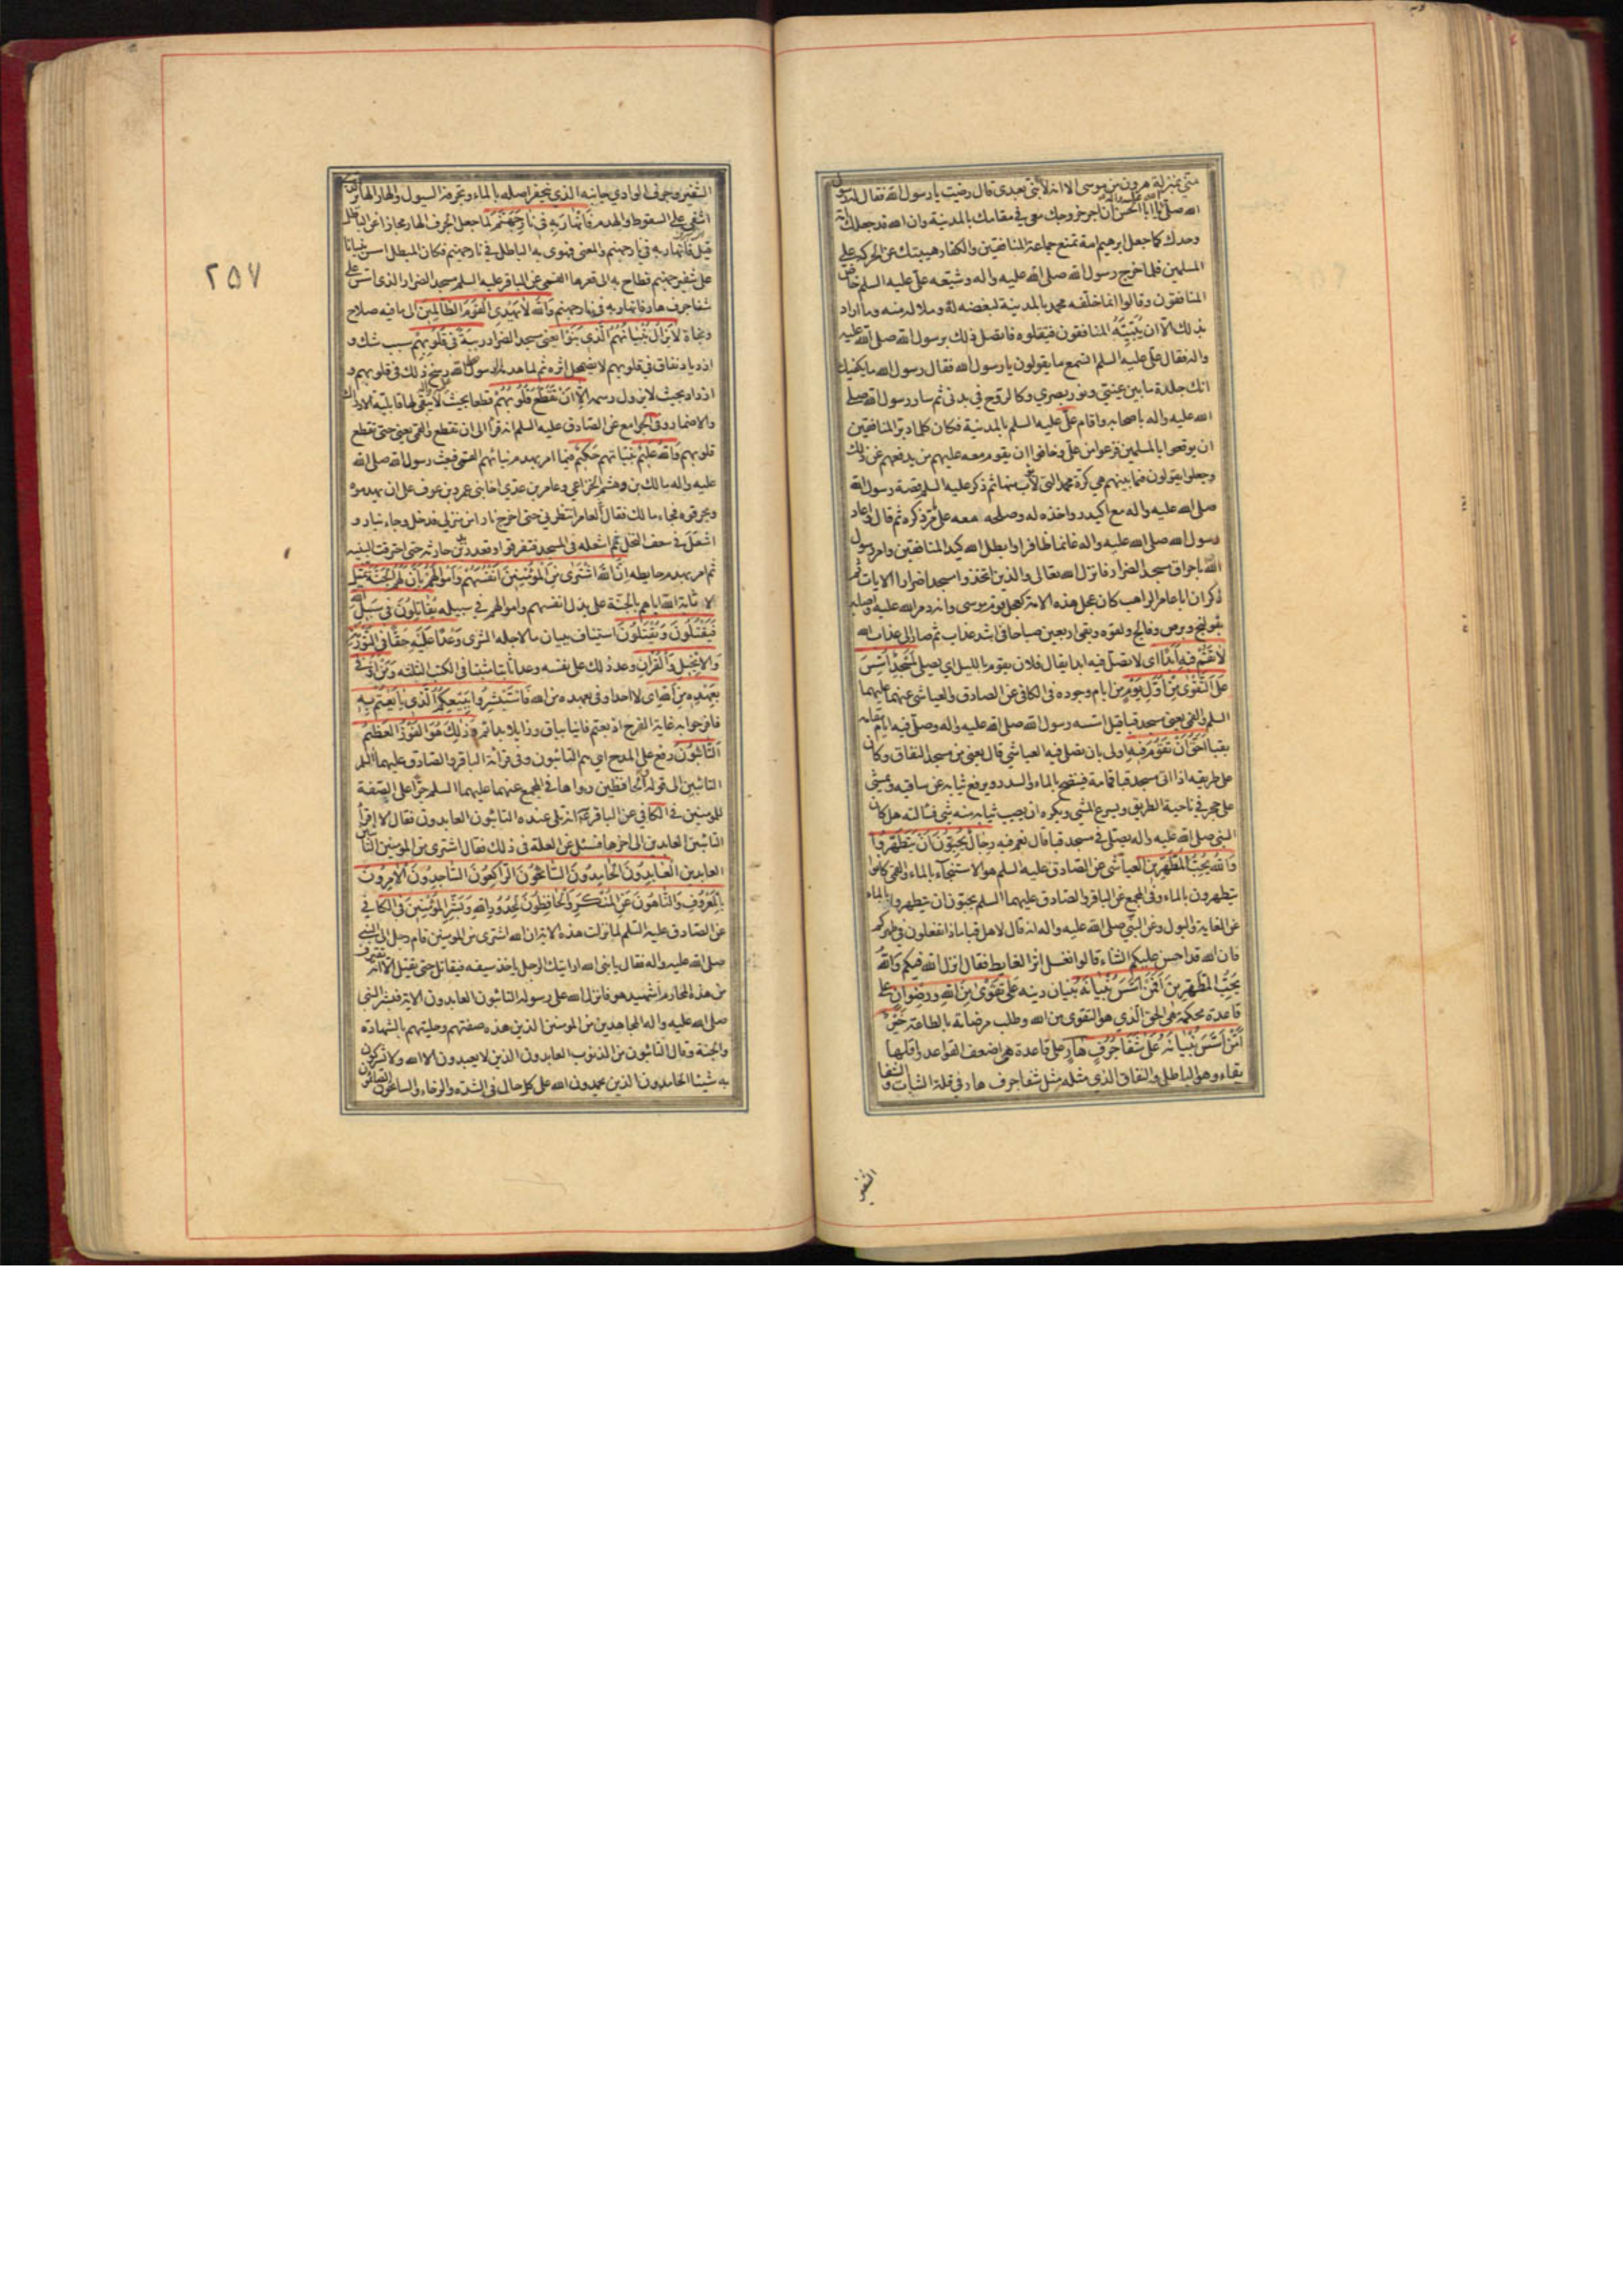 منّي بمنزلة هرون من موسى الا انه لا نبيّ بعدى قال رضيت يا رسول الله فقال له رسول
الله صلّى الله عليه واله يا ابا الحسن انّ اجر خروجك معى في مقامك بالمدينة وان الله قد جعلك امّة
وحدك كما جعل ابرهيم امة تمنع جماعة المنافقين والكفار هيبتك عن الحركة على
المسلمين فلما خرج رسول الله صلى الله عليه واله وشيّعه علىّ عليه السلم خاض
المنافقون وقالوا انما خلّفه محمد بالمدينة لبغضه له وملاله منه وما اراد
بذلك الّا ان يُبَيّتَهُ المنافقون فيقتلوه فاتصل ذلك برسول الله صلى الله عليه
واله فقال علىّ عليه السلم اتسمع ما يقولون يا رسول الله فقال رسول الله ما يكفيك
انك جلدة ما بين عينىّ ونور بصري وكالروح في بدنى ثم سار رسول الله صلى
الله عليه واله باصحابه واقام علىّ عليه السلم بالمدينة فكان كلما دبّر المنافقين
ان يوقعوا بالمسلمين فزعوا من علىّ وخافوا ان يقوم معه عليهم من يدفعهم عن ذلك
وجعلوا يقولون فيما بينهم هي كرة محمد التي لا يؤب منها ثم ذكر عليه السلم قصة رسول الله
صلى الله عليه واله مع اكيدر واخذه له وصلحه معه على ما مرّ ذكره ثم قال وعاد
رسول الله صلى الله عليه واله غانما ظافرا وابطل الله كيد المنافقين وامر رسول
الله باحراق مسجد الضرار فانزل الله تعالى والذين اتخذوا مسجدا ضرارا الايات ثم
ذكر ان ابا عامر الراهب كان عجل هذه الامة كعجل قوم موسى وانه دمر الله عليه واصابه
بقولنج وبرص وفالج ولقوه وبقى اربعين صباحا في اشد عذاب ثم صار الى عذاب الله
لَا تَقُمْ فِيهِ اَبَدًا اى لا تصلّ فيه ابدا يقال فلان يقوم بالليل اي يصلي لَمَسْجِدٌ اُسِّسَ
عَلَى التَّقْوَى مِنْ اَوَّلِ يَوْمٍ من ايام وجوده في الكافي عن الصادق والعياشي عنهما عليهما
السلم والقمي يعنى مسجد قبا قيل اسّسه رسول الله صلى الله عليه واله وصلّى فيه ايام مقامه
بقبا اَحَقُّ اَنْ تَقُومَ فِيهِ اولى بان تصلى فيه العياشي قال يعنى من مسجد النفاق وكان
على طريقه اذا اتى مسجد قبا قامة فينضح بالماء والسدر ويرفع ثيابه عن ساقيه ويمشى
على حجر في ناحية الطريق ويسرع المشي ويكره ان يصيب ثيابه منه شئ فسالته هل كان
النبي صلى الله عليه واله يصلى في مسجد قبا قال نعم فِيهِ رِجَالٌ يُحِبُّونَ اَنْ يَتَطَهَّرُوا
وَاللهُ يُحِبُّ الْمُطَّهِّرِينَ العياشي عن الصادق عليه السلم هو الاستنجاء بالماء والقمى كانوا
يتطهرون بالماء وفي المجمع عن الباقر والصادق عليهما السلم يحبّون ان يتطهروا بالماء
عن الغايط والبول وعن النبّي صلى الله عليه واله انه قال لاهل قبا ماذا تفعلون في طهركم
فان الله قد احسن عليكم الثناء قالوا نغسل اثر الغايط فقال انزل الله فيكم والله
يُحِبُّ الْمُطَّهِّرِينَ اَفَمَنْ اَسَّسَ بُنْيَانَهُ بنيان دينه عَلَى تَقْوَى مِنَ اللهِ وَرِضْوَانٍ على
قاعدة محكمة هي الحق الّذي هو التقوى من الله وطلب مرضاته بالطاعة خَيْرٌ
اَمْ مَنْ اَسَّسَ بُنْيَانَهُ عَلَى شَفَا جُرُفٍ هَارٍ على قاعدة هي اضعف القواعد واقلها
بقاء وهو الباطل والنفاق الذي مثله مثل شفا جرف هار في قلة الثبات والشفا
الشفير
الشفير وجرف الوادي جانبه الذي ينحفر اصله بالماء وتجرفه السيول والهار الهاير الذى
اشفى على السقوط والهدم فَانْهَارَ بِهِ فِي نَارِ جَهَنَّمَ لما جعل الجرف الهار مجازا عن الباطل
قيل فانهار به في نار جهنم والمعنى فهوى به الباطل في نار جهنم فكان المبطل اسس بنيانا
على شفير جهنم فطاح به الى قعرها القمي عن الباقر عليه السلم مسجد الضرار الذى اسس على
شفا جرف هار فانهار به في نار جهنم وَاللهُ لَا يَهْدِي الْقَوْمَ الظَّالِمِينَ الى ما فيه صلاح
ونجاة لَا يَزَالُ بُنْيَانُهُمُ الَّذِي بَنَوْا يعنى مسجد الضرار رِيبَةً فِي قُلُوبِهِمْ سبب شك و
ازدياد نفاق في قلوبهم لا يضمحل اثره ثم لما هدمه الرسول رسخ ذلك في قلوبهم و
ازداد بحيث لا يزول رسمه اِلَّا اَنْ تَقَطَّعَ قُلُوبُهُمْ قطعا بحيث لا يبقى لها قابلية الادراك
والاضمار وفي الجوامع عن الصّادق عليه السلم انه قرأ الى ان تقطع والقمى يعنى حتى تقطع
قلوبهم وَاللهُ عَلِيمٌ بنياتهم حَكِيمٌ فيما امر بهدم بنيانهم القمى فبعث رسول الله صلى الله
عليه واله مالك بن وخشم الخزاعي وعامر بن عدى اخا بنى عمرو بن عوف على ان يهدموه
ويحرقوه فجاء مالك فقال لعامر انتظرني حتى اخرج نارا من منزلي فدخل وجاء بنار و
اشعل في سعف النخل ثم اشعله في المسجد فتفرقوا وقعد زيد بن حارثه حتى احترقت البنية
ثم امر بهدم حايطه اِنَّ اللهَ اشْتَرَى مِنَ الْمُؤْمِنِينَ اَنْفُسَهُمْ وَاَمْوَالَهُمْ بِاَنَّ لَهُمُ الْجَنَّةَ تمثيل
لاثابة الله اياهم بالجنّة على بذل انفسهم واموالهم في سبيله يُقَاتِلُونَ فِي سَبِيلِ اللهِ
فَيَقْتُلُونَ وَيُقْتَلُونَ استيناف ببيان ما لاجله الشرى وَعْدًا عَلَيْهِ حَقًّا فِي التَّوْرٰيةِ
وَالْاِنْجِيلِ وَالْقُرْاٰنِ وعد ذلك على نفسه وعدا ثابتا مثبتا في الكتب الثلثه وَمَنْ اَوْفَى
بِعَهْدِهِ مِنَ اللهِ اى لا احد اوفى بعهده من الله فَاسْتَبْشِرُوا بِبَيْعِكُمُ الَّذِي بَايَعْتُمْ بِهِ
فافرحوا به غاية الفرح اذ بعتم فانيا بباق وزايلا بدائم وَذٰلِكَ هُوَ الْفَوْزُ الْعَظِيمُ
اَلتَّائِبُونَ رفع على المدح اي هم التائبون وفي قرائة الباقر والصادق عليهما السلم
التائبين الى قوله والحافظين رواها في المجمع عنهما عليهما السلم جرّا على الصّفة
للمؤمنين في الكافي عن الباقر ع انه تلى عنده التائبون العابدون فقال لا اقرأ
التائبين العابدين الى اخرها فسئل عن العلة في ذلك فقال اشترى من المؤمنين التائبين
العابدين الْعَابِدُونَ الْحَامِدُونَ السَّائِحُونَ الرَّاكِعُونَ السَّاجِدُونَ الْاٰمِرُونَ
بِالْمَعْرُوفِ وَالنَّاهُونَ عَنِ الْمُنْكَرِ وَالْحَافِظُونَ لِحُدُودِ اللهِ وَبَشِّرِ الْمُؤْمِنِينَ في الكافي
عن الصّادق عليه السّلم لما نزلت هذه الاية ان الله اشترى من المؤمنين قام رجل الى النبي
صلى الله عليه واله فقال يا نبى الله ارايتك الرجل ياخذ سيفه فيقاتل حتى يقتل الّا انه يقترف
من هذه المحارم اشهيد هو فانزل الله على رسوله التائبون العابدون الاية فبشر النبي
صلى الله عليه واله المجاهدين من المؤمنين الذين هذه صفتهم وحليتهم بالشهادة
والجنة وقال التائبون من الذنوب العابدون الذين لا يعبدون الا الله ولا يشركون
به شيئا الحامدون الذين يحمدون الله على كل حال في الشدّة والرخاء والسائحون الصائمون
٢٥٧